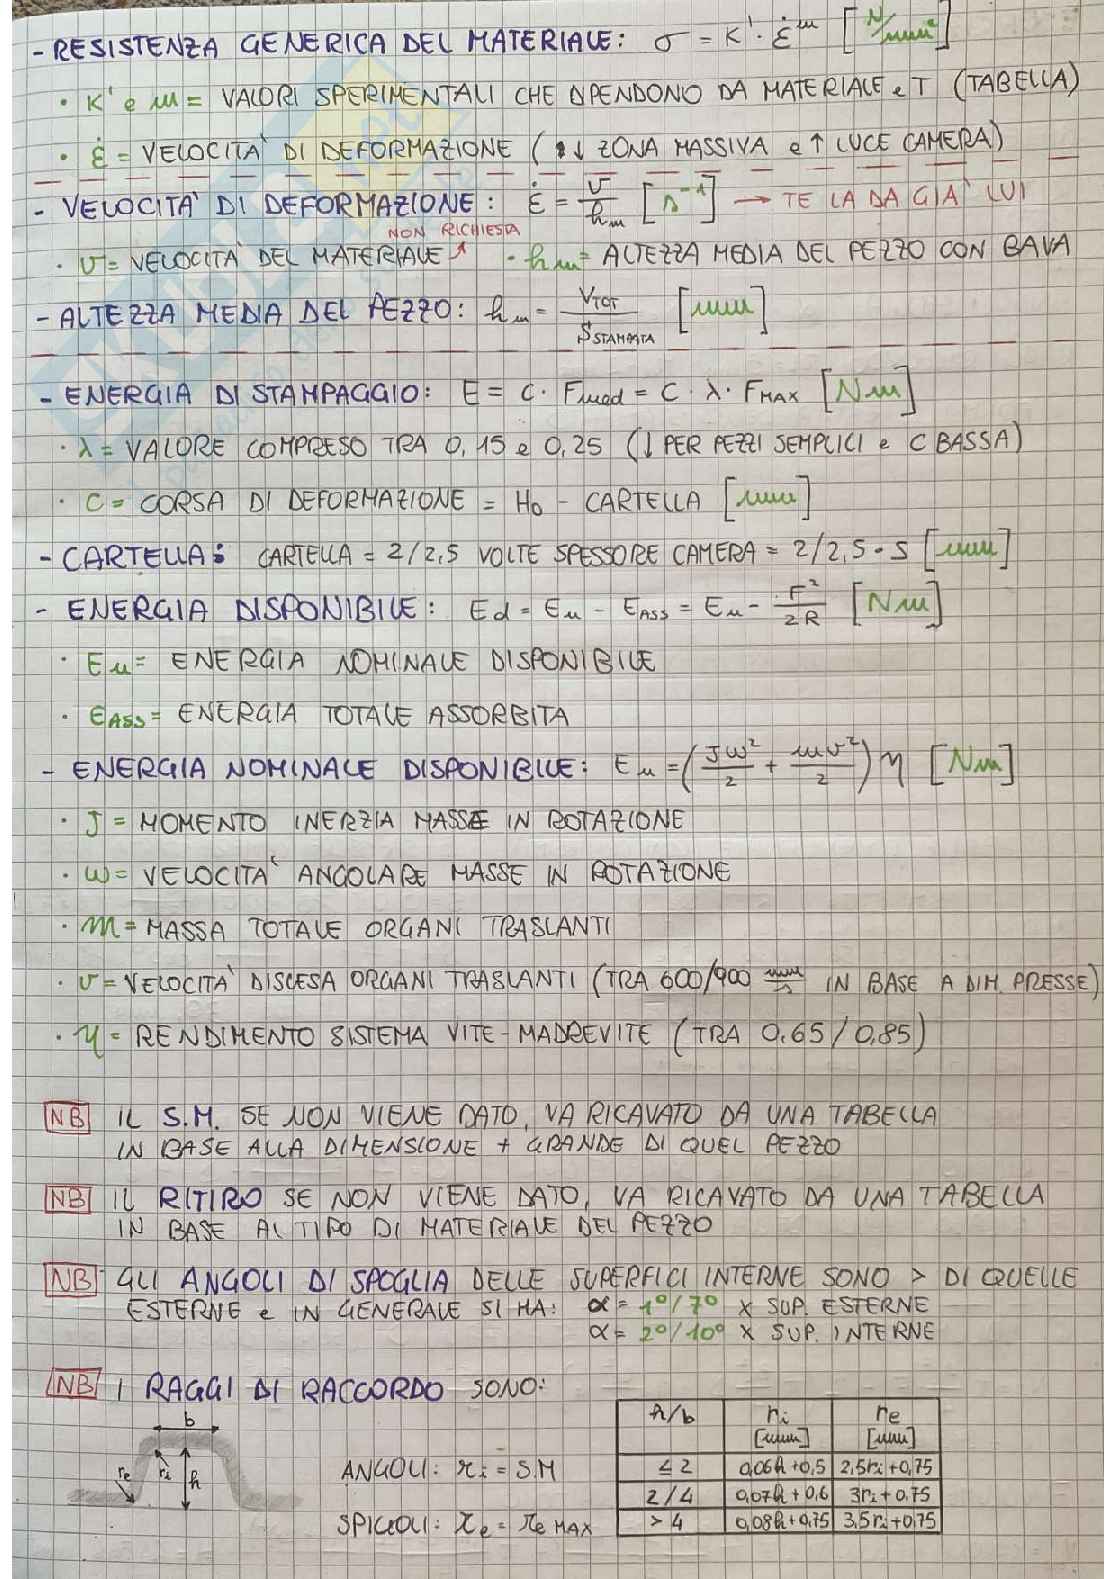 - RESISTENZA GENERICA DEL MATERIALE: σ = K'· ε̇ᵐ [N/mm²]
· K' e m = VALORI SPERIMENTALI CHE DIPENDONO DA MATERIALE e T (TABELLA)
· ε̇ = VELOCITA' DI DEFORMAZIONE (↓ ZONA MASSIVA e ↑ LUCE CAMERA)
- VELOCITA' DI DEFORMAZIONE: ε̇ = v/hm [s⁻¹] → TE LA DA GIA' LUI
NON RICHIESTA
· v = VELOCITA' DEL MATERIALE ↗ · hm = ALTEZZA MEDIA DEL PEZZO CON BAVA
- ALTEZZA MEDIA DEL PEZZO: hm = VTOT/SSTAMPATA [mm]
- ENERGIA DI STAMPAGGIO: E = C · Fmed = C · λ · FMAX [Nm]
· λ = VALORE COMPRESO TRA 0,15 e 0,25 (↓ PER PEZZI SEMPLICI e C BASSA)
· C = CORSA DI DEFORMAZIONE = H0 - CARTELLA [mm]
- CARTELLA: CARTELLA = 2/2,5 VOLTE SPESSORE CAMERA = 2/2,5 · S [mm]
- ENERGIA DISPONIBILE: Ed = En - EASS = En - F²/2R [Nm]
· En = ENERGIA NOMINALE DISPONIBILE
· EASS = ENERGIA TOTALE ASSORBITA
- ENERGIA NOMINALE DISPONIBILE: En = (Jω²/2 + mv²/2) η [Nm]
· J = MOMENTO INERZIA MASSE IN ROTAZIONE
· ω = VELOCITA' ANGOLARE MASSE IN ROTAZIONE
· m = MASSA TOTALE ORGANI TRASLANTI
· v = VELOCITA' DISCESA ORGANI TRASLANTI (TRA 600/900 mm/s IN BASE A DIM. PRESSE)
· η = RENDIMENTO SISTEMA VITE-MADREVITE (TRA 0.65/0,85)
NB IL S.M. SE NON VIENE DATO, VA RICAVATO DA UNA TABELLA
IN BASE ALLA DIMENSIONE + GRANDE DI QUEL PEZZO
NB IL RITIRO SE NON VIENE DATO, VA RICAVATO DA UNA TABELLA
IN BASE AL TIPO DI MATERIALE DEL PEZZO
NB GLI ANGOLI DI SPOGLIA DELLE SUPERFICI INTERNE SONO > DI QUELLE
ESTERNE e IN GENERALE SI HA: α = 1°/7° x SUP. ESTERNE
α = 2°/10° x SUP. INTERNE
NB I RAGGI DI RACCORDO SONO:
b
re ri h
ANGOLI: ri = S.M
SPIGOLI: re = re MAX
h/b ri [mm] re [mm]
≤ 2 0,06h+0,5 2,5ri+0,75
2/4 0,07h+0,6 3ri+0,75
> 4 0,08h+0,75 3,5ri+0,75